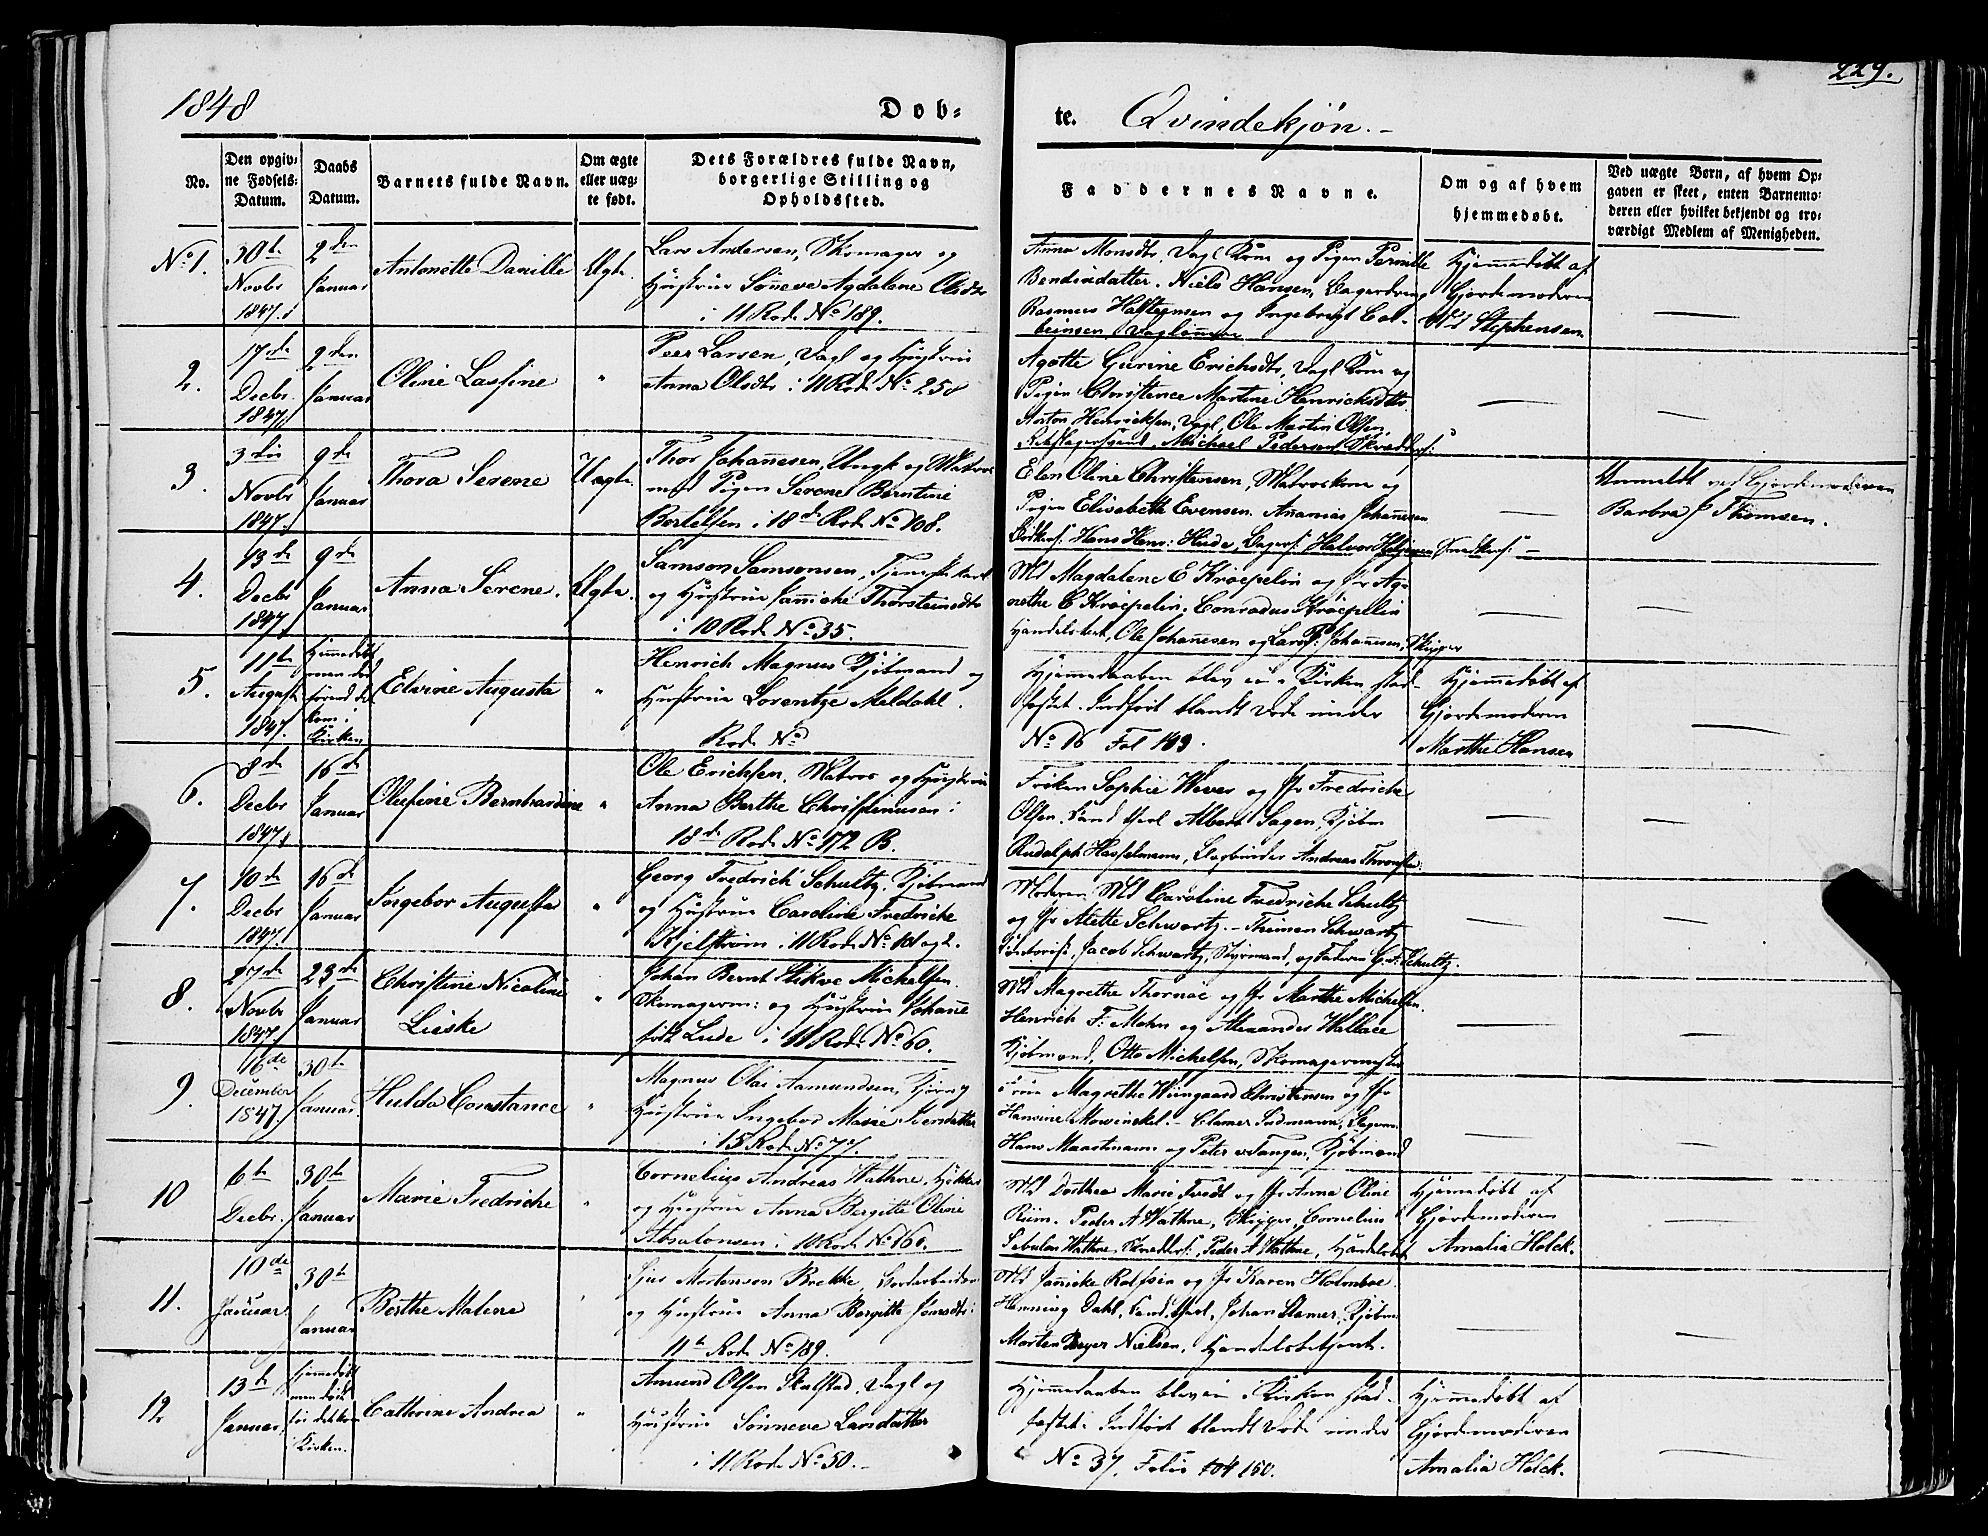 229.
1848
Dob-
te.
Qvindekjön.-
No.
Den opgiv-
ne Fødsels-
Datum.
Daabs
Datum.
Barnets fulde Navn.
Om ægte
eller uæg-
te født.
Dets Forældres fulde Navn,
borgerlige Stilling og
Opholdssted.
Faddernes Navne.
Om og af hvem
hjemmedøbt.
Ved uægte Børn, af hvem Op-
gaven er skeet, enten Barnemo-
deren eller hvilket bekjendt og tro-
værdigt Medlem af Menigheden.
No 1.
30te
Novbr
1847.
2den
Januar
Antonette Danille
Ægte.
Lars Andersen, Skomager og
Hustrue Sönneve Agdalene Olsdtr
i 11 Rode No 189.
Anna Monsdtr, Vagl Kone og Pigen Pernille
Bendixdatter. Niels Hansen, Dagerdreng
Rasmus Halstensen og Ingebrigt Col-
beinsen Vaglönnere
Hjemmedöbt af
Gjordemoderen
Md Stephensen
2.
17de
Decbr.
1847
2den
Januar
Oline Lassine
"
Peer Larsen, Vagl og Hustrue
Anna Olsdtr i 11 Rode No 258
Agotte Gurine Erichsdtr, Vagl Kone og
Pigen Christence Martine Henricksdtr
Anton Henricksen, Vagl, Ole Martin Olsen,
Rebslagersvend, Michael Pedersen Skrædders:
3.
3die
Novbr
1847.
9de
Januar
Thora Serene
Uægte.
Thor Johannesen, Ungk og Matros
med Pigen Serene Berntine
Bertelsen i 18de Rode No 108.
Elen Oline Christensen, Matroskone og
Pigen Elisabeth Evensen. Ananias Johannesen
Hans Henr: Hinde, Dagers: Halvor Smeders:
Anmeldt ved Gjordemoderen
Barbra J Thomsen.
4.
13de
Decbr
1847
9de
Januar
Anna Serene.
Ægte.
Samson Samsonsen, Tjenestekarl
og Hustrue Jannicke Thorsteinsdtr
i 10 Rode No 35.
Md Magdalene E Kröepelin og Jfr Ag-
nethe C Kröepelin. Conradus Kröepelin
Handelsbet, Ole Johannesen og Lars P: Johannesen, Skipper
5.
11te
August
1847.
Hjemmedöbt
men död
förend det
kom i
Kirken
Elvine Augusta
"
Henrich Magnus Kjöbmand og
Hustrue Lorentze Meldahl.
Rode No
Hjemmedaaben blev ei i Kirken stad-
fæstet. Indfört blandt Döde under
No 16 Fol 149.
Hjemmedöbt af
Gjordemoderen
Marthe Hansen
6.
8de
Decbr
1847.
16de
Januar
Olufine Bernhardine
"
Ole Erichsen, Matros og Hustrue
Anna Berthe Christensen i
18de Rode No 172 B.
Fröken Sophie Wever og Jfr Fredriche
Olsen. Cand theol Albert Sagen, Kjöbm
Rudolph Hasselmann, Bogbinder Andreas
7.
10de
Decbr
1847.
16de
Januar
Ingebor Augusta
"
Georg Fredrich Schultz, Kjöbmand
og Hustrue Caroline Fredriche
Kjelström i 11 Rode No 101 og 2.
Moderen Md Caroline Fredriche Schultz
og Jfr Alette Schwartz. - Thimon Schwartz
Jacob Schwartz, Styrmand, og Faderen G. F. Schultz.
8.
27de
Novbr
1847.
23de
Januar
Christine Nicoline
Lieske
"
Johan Bernt Michelsen.
Skomagerm: og Hustrue Johanne
född Lude i 11 Rode No 60.
Md Magrethe Thornöe og Jfr Marthe Michelsen.
Henrich F: Mohn og Alexander Wallace
Kjöbmand, Otto Michelsen, Skomagermester
9.
16de
December
1847.
30te
Januar
Hulda Constance
"
Magnus Olai Aamundsen, og
Hustrue Ingebor Marie Iversdatter
i 15 Rode No 77.
Frue Magrethe Wiingaard Christensen og Jfr
Hansine Mowinckel. - Clamer
Hans Maartmann og Peter v Tangen, Kjöbmænd
10
6te
Decbr.
30te
Januar
Marie Fredriche
"
Cornelius Andreas Wathne, Höker
og Hustrue Anna Bergitte Oline
Absalonsen i 10 Rode No 166.
Md Dorthea Marie Tvedt og Jfr Anna Oline
Riim. Peder A Wathne, Skipper, Cornelius
Sebulon Wathne, Peder A Wathne, Handelsbet
Hjemmedöbt af
Gjordemoderen
Amalia Holck.
11.
10de
Januar
30te
Januar
Berthe Malene
"
Sjur Mortensen Brekke,
og Hustrue Anna Bergitte Jonsdtr i
11te Rode No 189.
Md Jannicke Rolfsen og Jfr Karen Holmboe
Henning Dahl, Cand theol, Johan Clamer, Kjöbm
Morten Beyer Nielsen, Handelsbetjent.
12
13te
Januar
Hjemmedöbt
men död
för det kom
i Kirken.
Cathrine Andrea
"
Amund Olsen Skalstad, Vagl og
Hustrue Sönneve Larsdatter
i 11 Rode No 50.-
Hjemmedaaben blev ei i Kirken stad-
fæstet. Indfört blandt Döde under
No 37, Folio 150.
Hjemmedöbt af
Gjordemoderen
Amalia Holck.